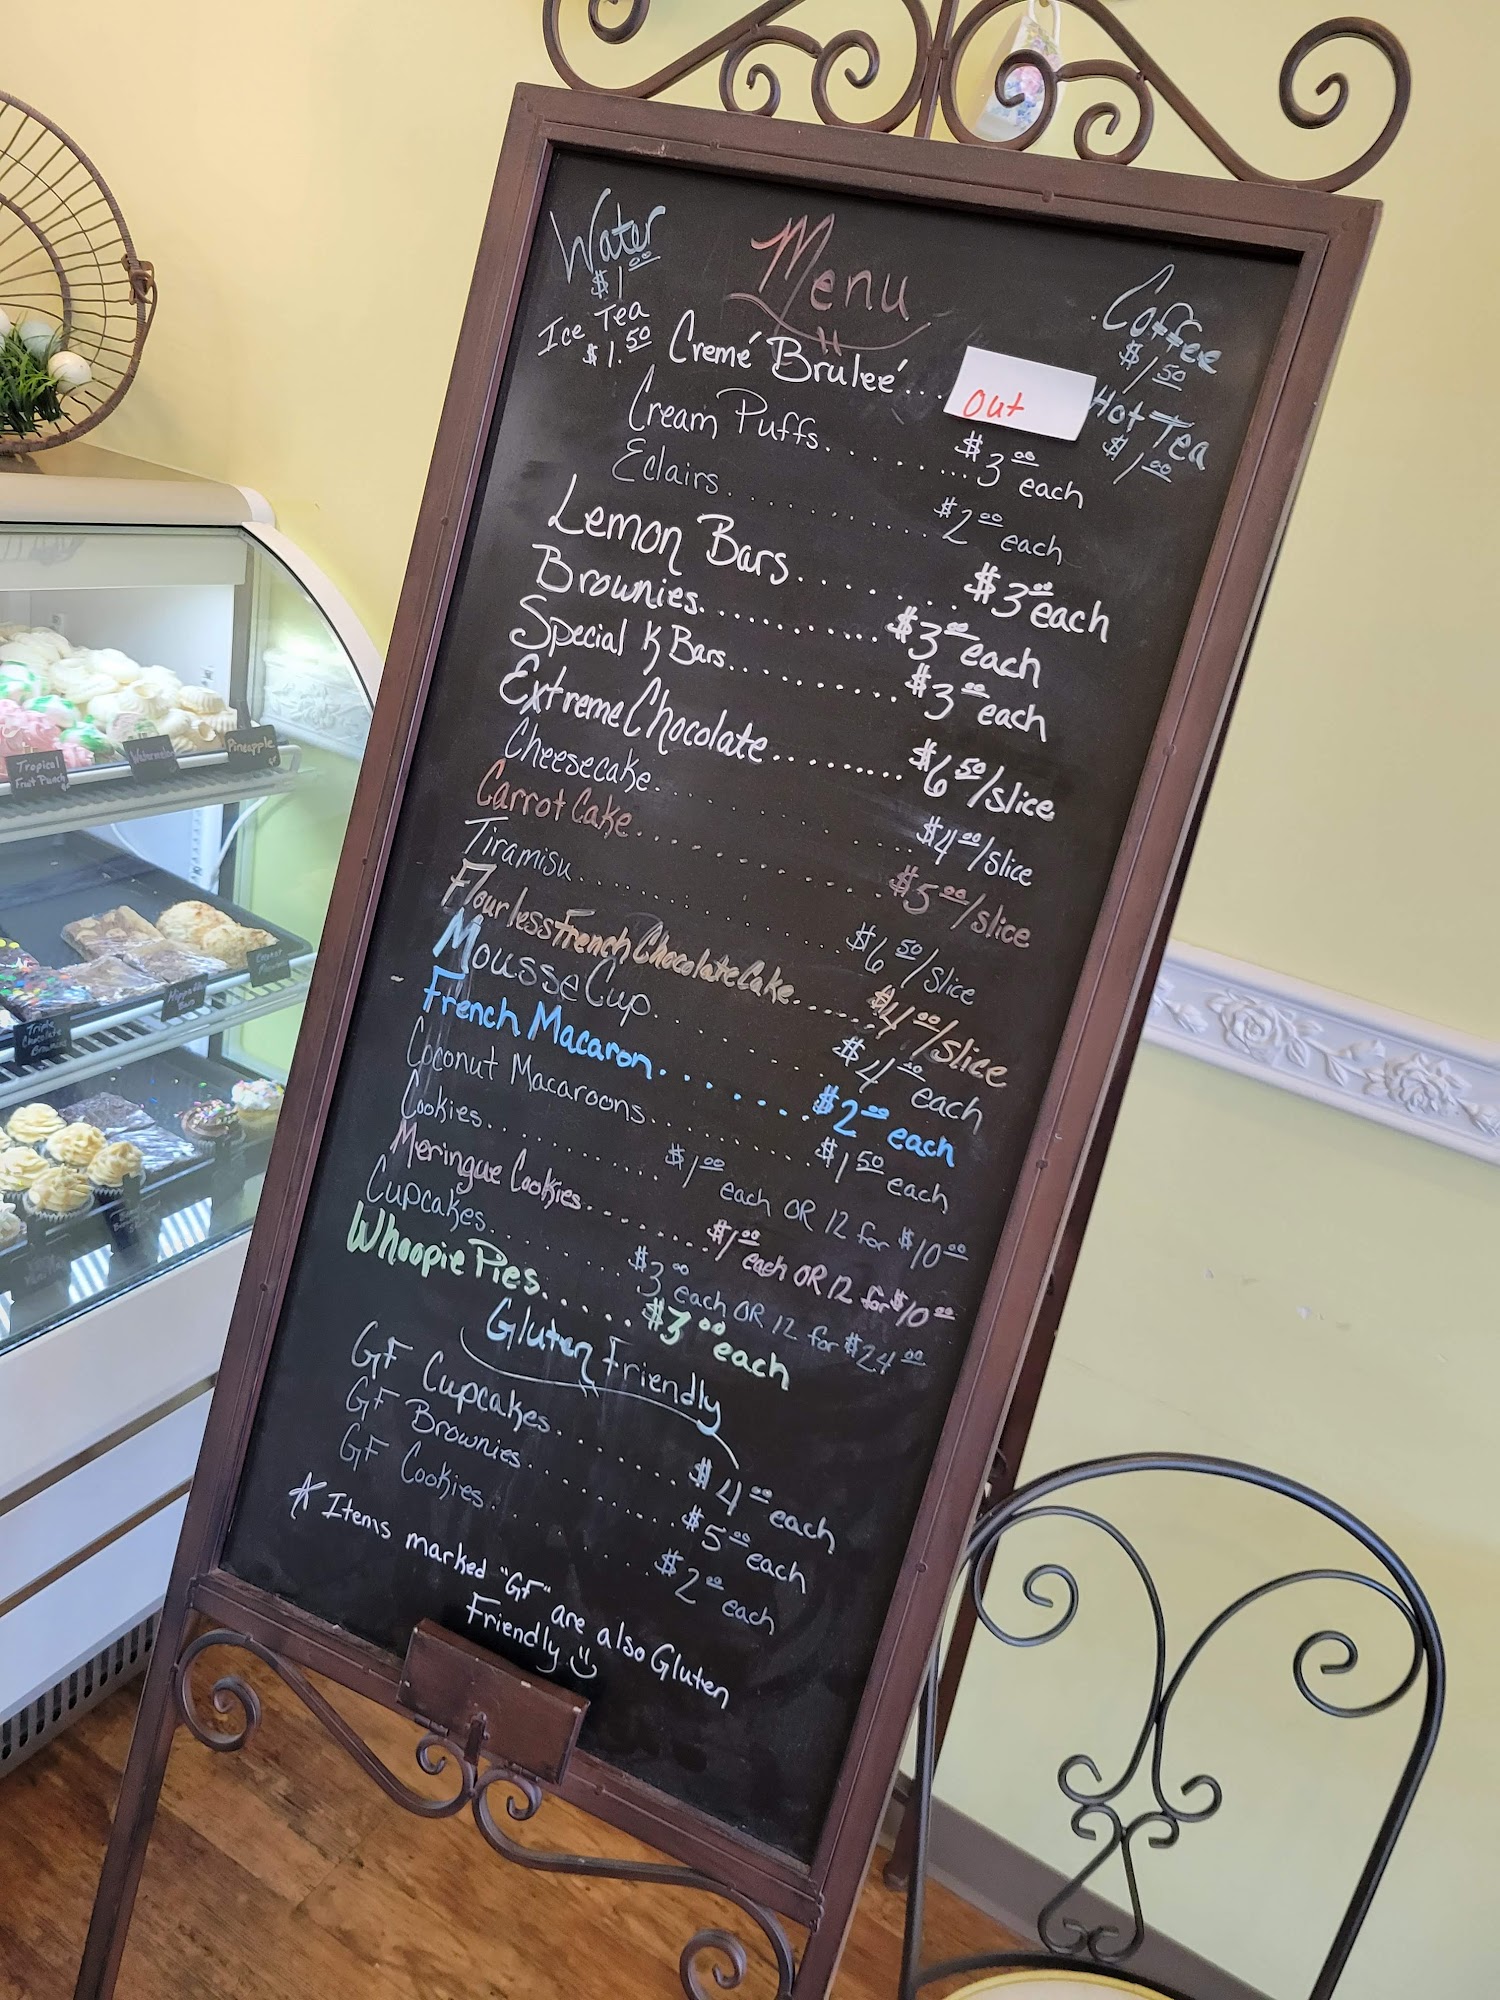 Menu
Water
$1.00
Ice Tea
$1.50
Coffee
$1.50
Hot Tea
$1.00
Cremé Bruleé... out
Cream Puffs.......... $3.00 each
Eclairs............ $2.00 each
Lemon Bars........ $3.00 each
Brownies............ $3.00 each
Special K Bars.......... $3.00 each
Extreme Chocolate......... $6.50/slice
Cheesecake............ $4.00/slice
Carrot Cake............ $5.00/slice
Tiramisu............ $6.50/slice
Flourless French Chocolate Cake...... $4.00/slice
Mousse Cup......... $4.00 each
French Macaron....... $2.00 each
Coconut Macaroons......... $1.50 each
Cookies............ $1.00 each OR 12 for $10.00
Meringue Cookies....... $1.00 each OR 12 for $10.00
Cupcakes........ $3.00 each OR 12 for $24.00
Whoopie Pies...... $3.00 each
Gluten Friendly
GF Cupcakes........ $4.00 each
GF Brownies......... $5.00 each
GF Cookies........ $2.00 each
* Items marked "GF" are also Gluten
Friendly
Tropical
Fruit Punch
Watermelon
Pineapple
Triple
Chocolate
Brownies